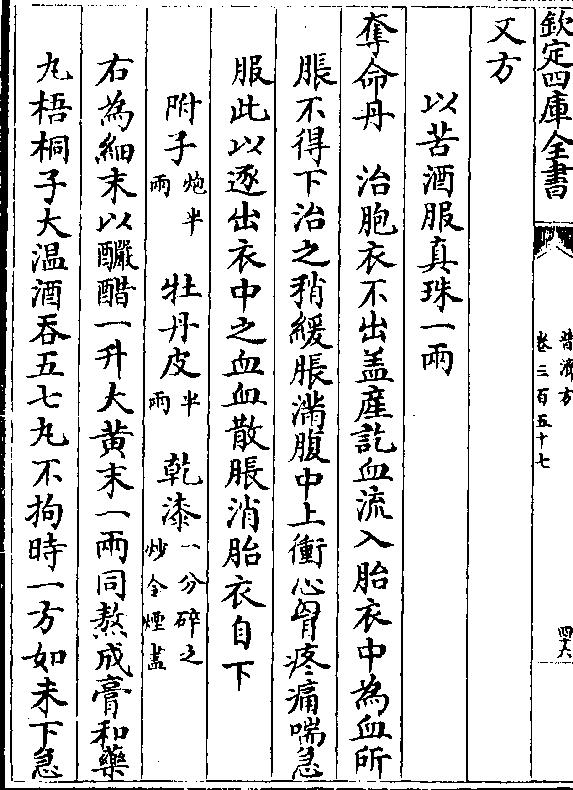 欽定四庫全書
普濟方
卷三百五十七
四六
又方
以苦酒服真珠一兩
奪命丹 治胞衣不出盖産訖血流入胎衣中為血所
脹不得下治之稍緩脹滿腹中上衝心胷疼痛喘急
服此以逐出衣中之血血散脹消胎衣自下
附子炮半兩 牡丹皮半兩 乾漆一分碎之炒令煙盡
右為細末以釅醋一升大黄末一兩同熬成膏和藥
丸梧桐子大温酒吞五七丸不拘時一方如未下急